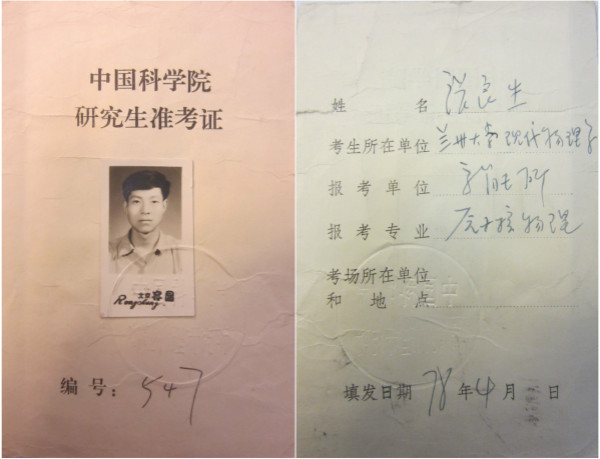 中国科学院
研究生准考证
北京容昌
Rong Chang
编号：547
姓名 张良生
考生所在单位 兰州大学现代物理系
报考单位 高能所
报考专业 原子核物理
考场所在单位
和地点
填发日期 78年4月 日